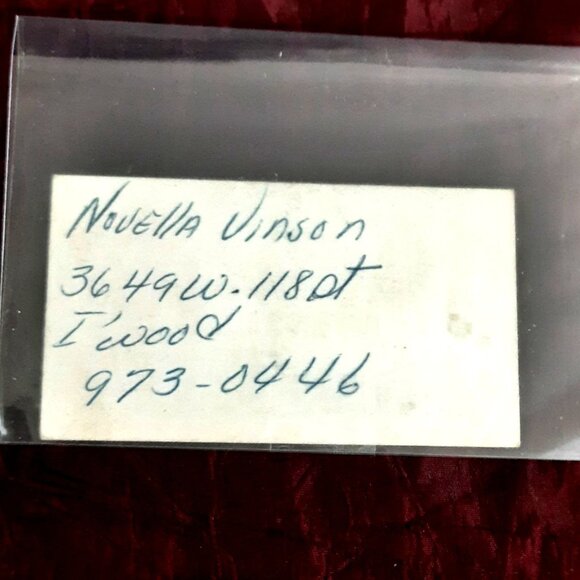 Novella Vinson
3649 W. 118 St
I'wood
973-0446